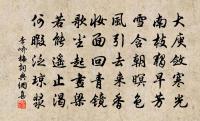 大庾斂寒光
南枝獨早芳
雪含朝暝色
風引去來香
妝面回青鏡
歌塵起畫梁
若能遙止渴
何暇泛瓊漿
李嶠梅詞典網喜